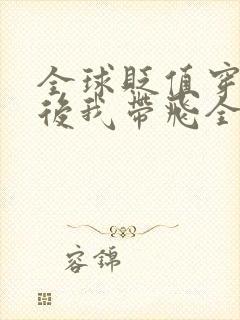 全球貶值穿
後我帶飛全
容錦